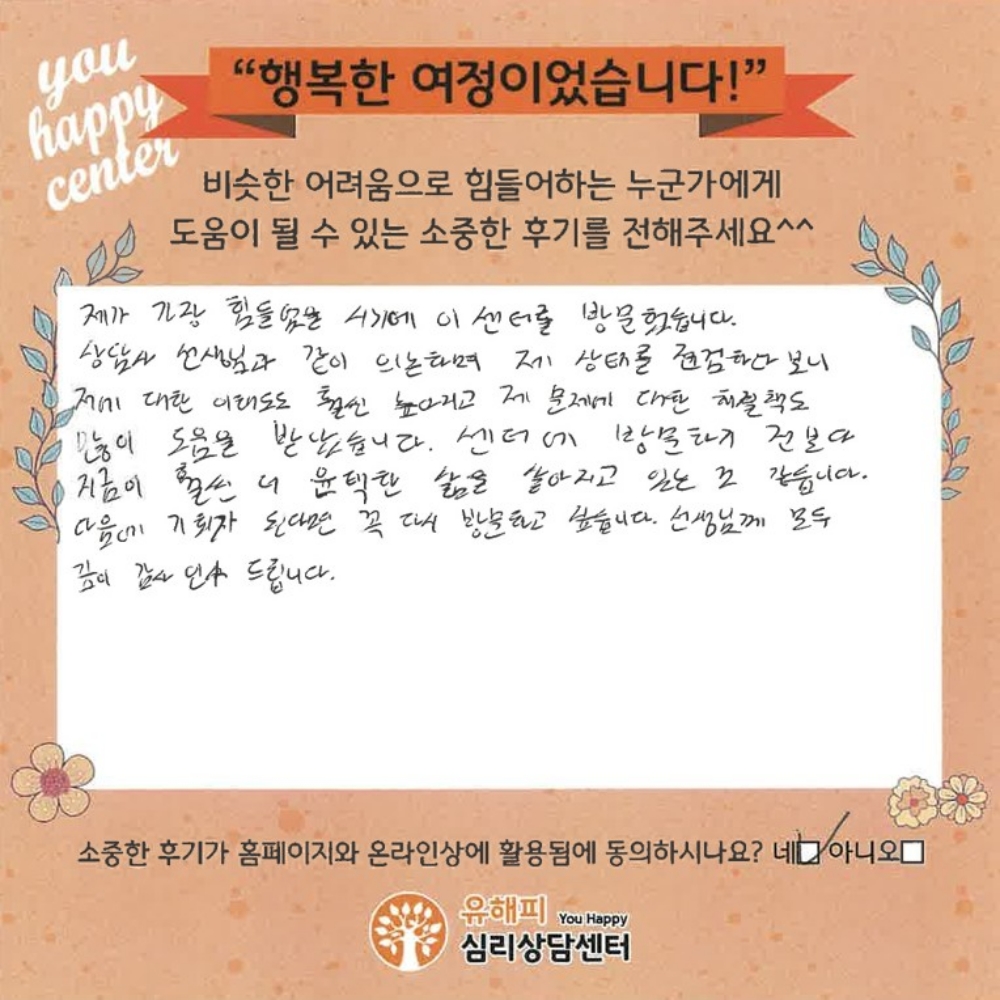 you
happy
center
“행복한 여정이었습니다!”
비슷한 어려움으로 힘들어하는 누군가에게
도움이 될 수 있는 소중한 후기를 전해주세요^^
제가 가장 힘들었을 시기에 이 센터를 방문했습니다.
상담사 선생님과 같이 의논하며 제 상태를 점검하다 보니
저에 대한 이해도도 훨씬 높아지고 제 문제에 대한 해결책도
많이 도움을 받았습니다. 센터에 방문하기 전보다
지금이 훨씬 더 윤택한 삶을 살아지고 있는 것 같습니다.
다음에 기회가 된다면 꼭 다시 방문하고 싶습니다. 선생님께 모두
깊이 감사 인사 드립니다.
소중한 후기가 홈페이지와 온라인상에 활용됨에 동의하시나요? 네 아니오
유해피 You Happy
심리상담센터